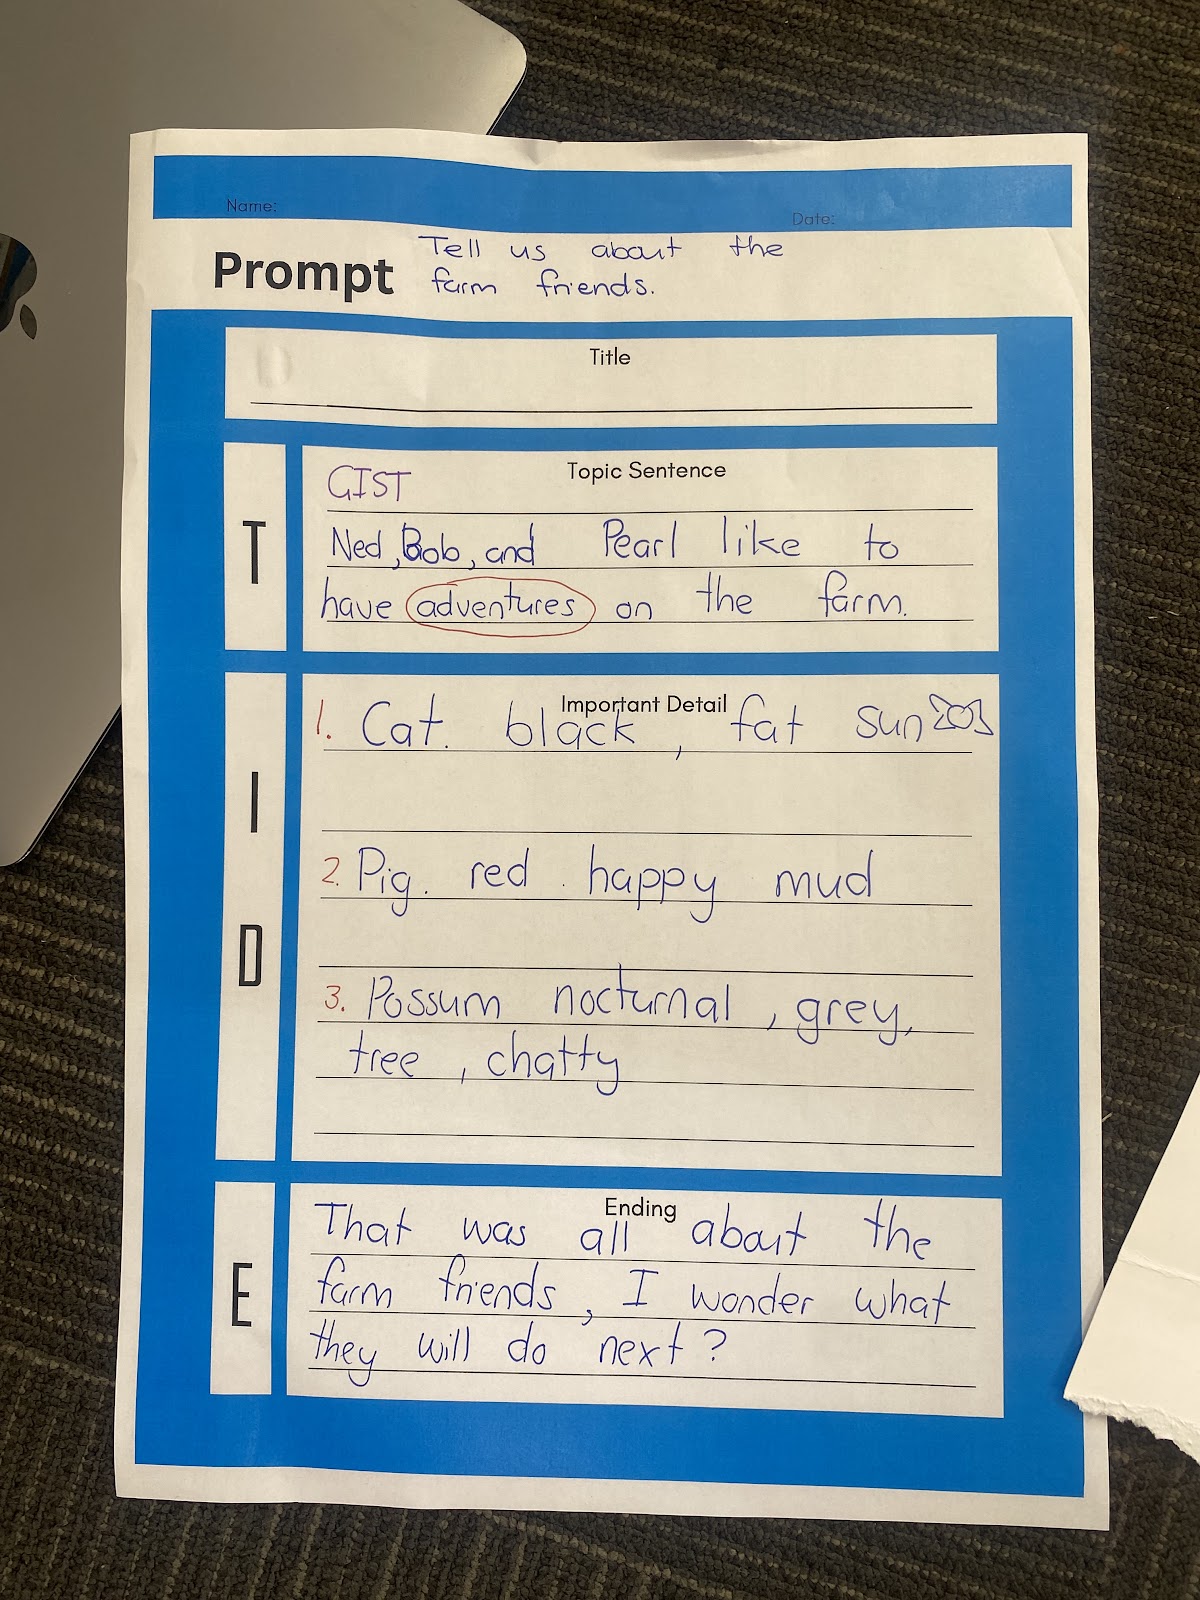 Name:
Date:
Prompt
Tell us about the
farm friends.
Title
T
Topic Sentence
GIST
Ned, Bob, and Pearl like to
have adventures on the farm.
I
D
Important Detail
1. Cat. black, fat sun
2. Pig. red. happy mud
3. Possum nocturnal, grey,
tree, chatty
E
Ending
That was all about the
farm friends, I wonder what
they will do next?